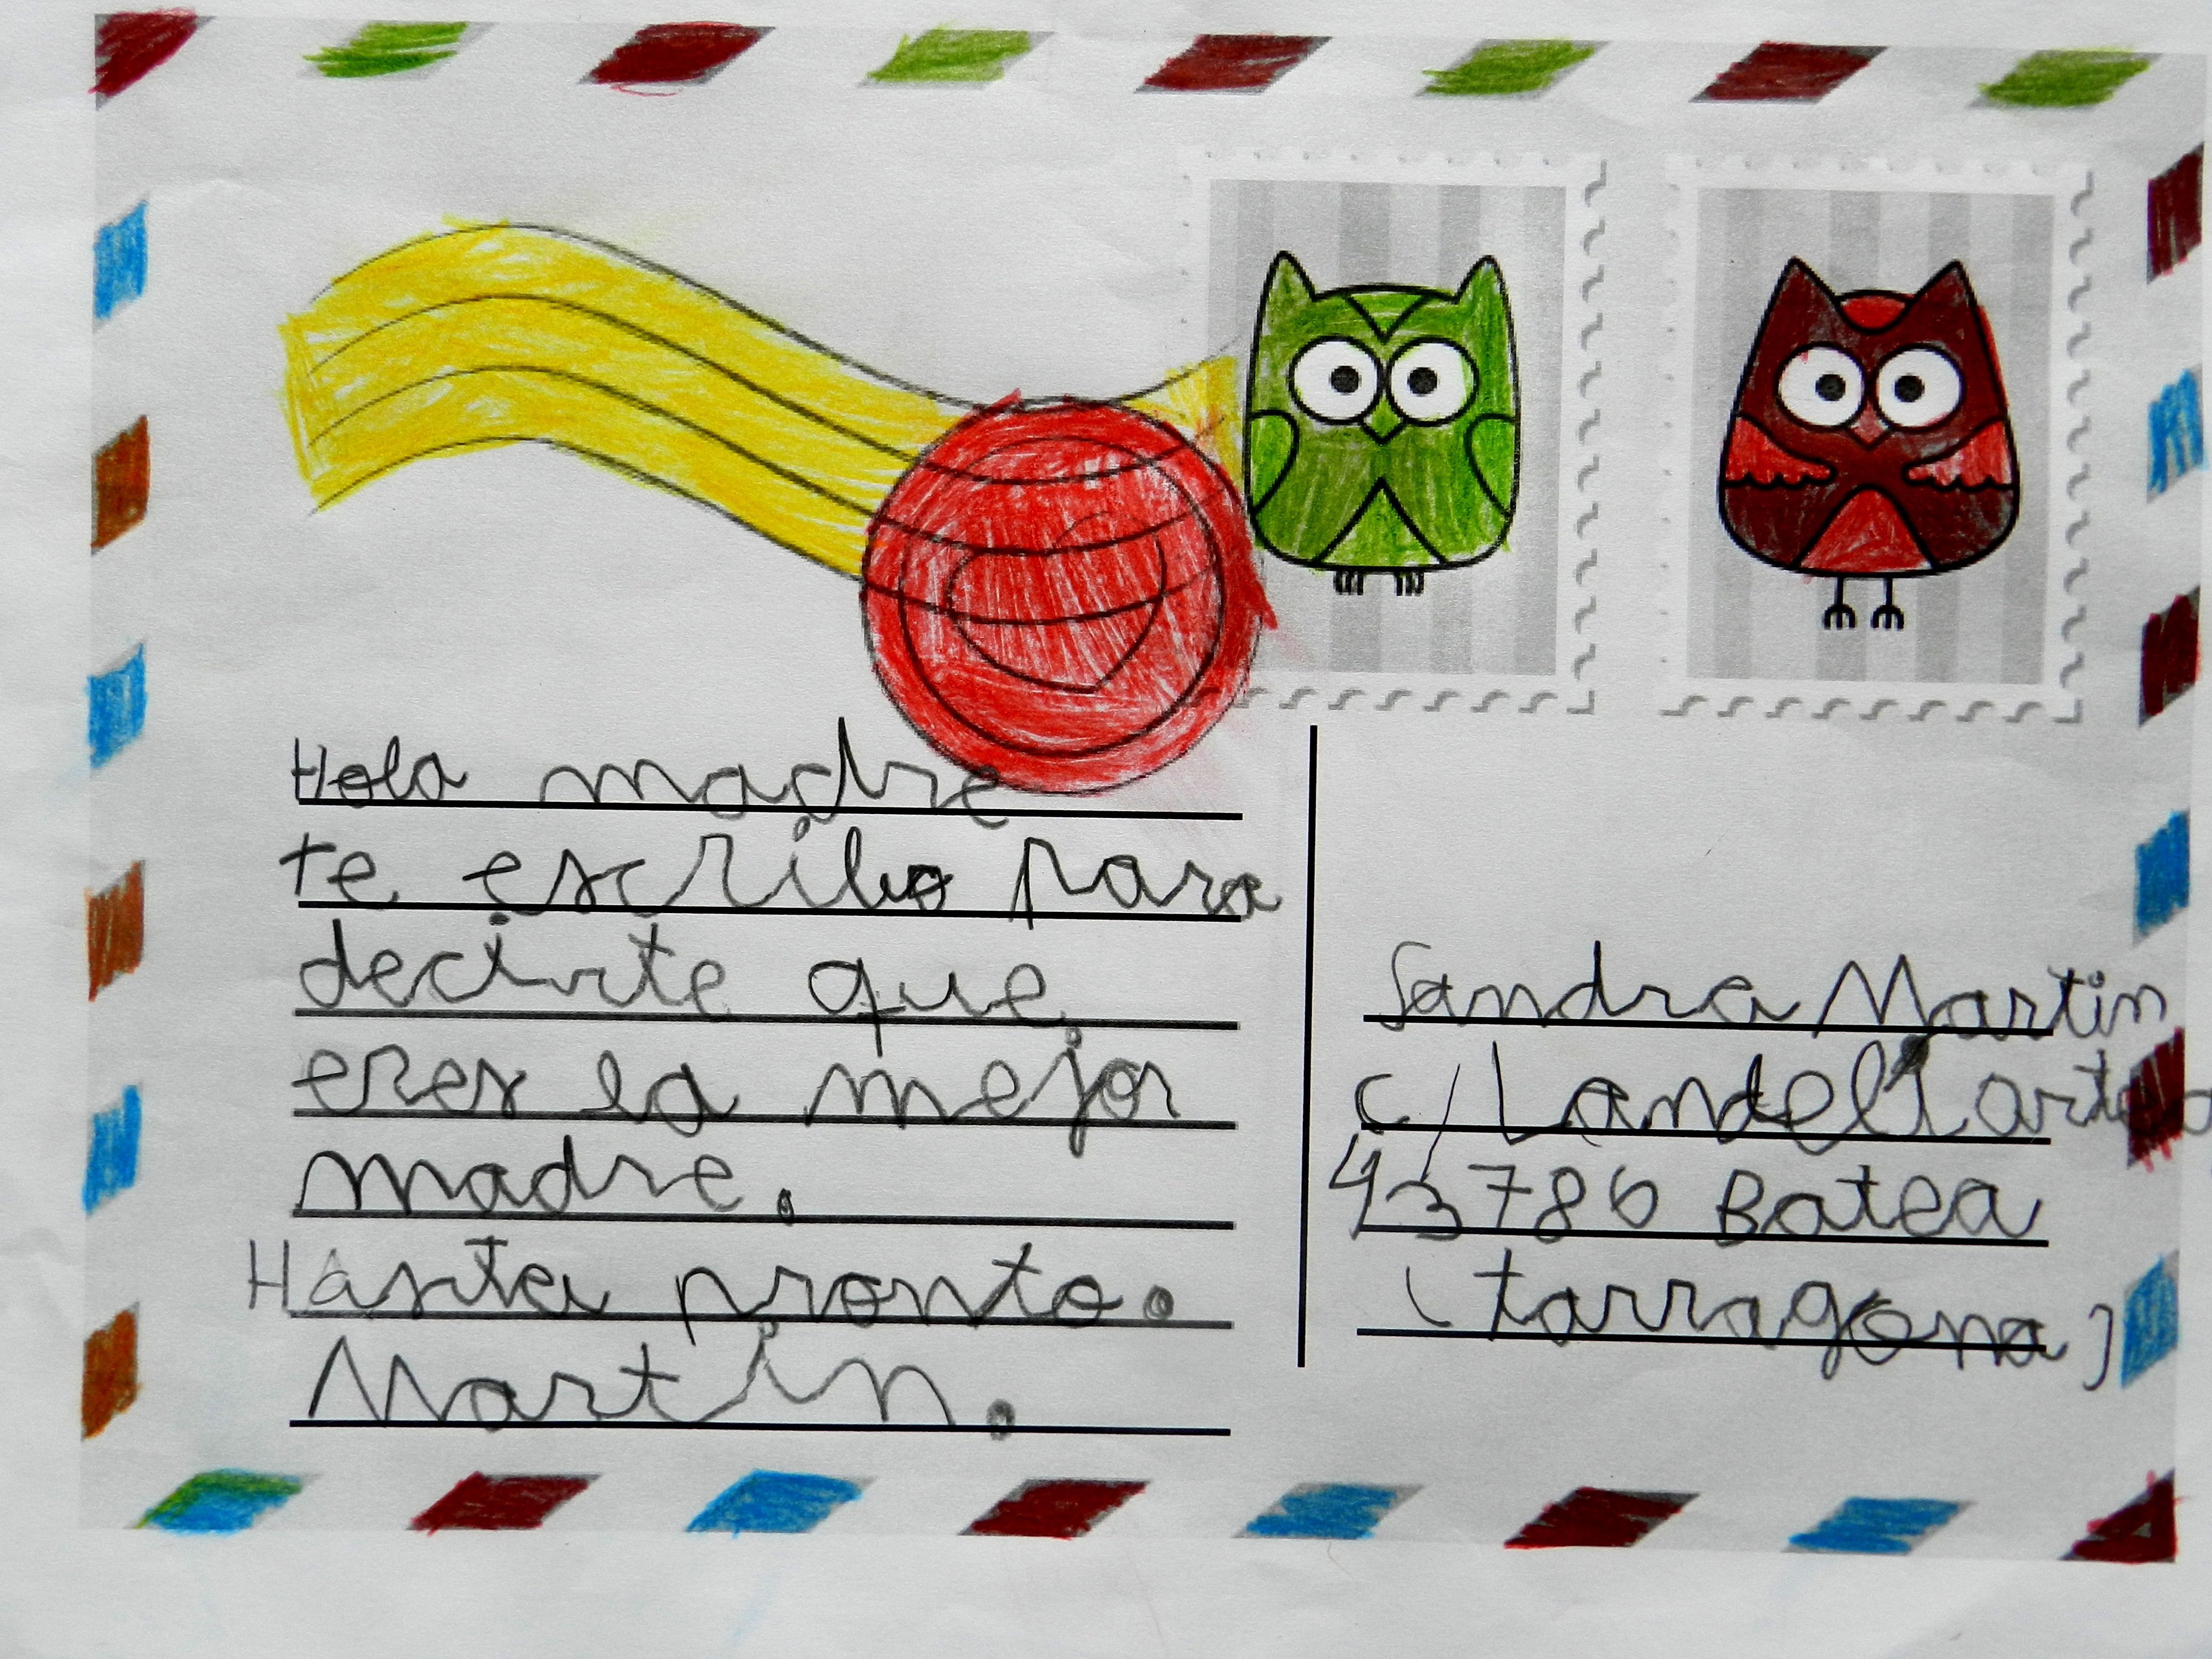 Hola madre
te escribo para
decirte que
eres la mejor
madre.
Hasta pronto.
Martin.
Sandra Martin
c/
43786 Batea
(tarragona)